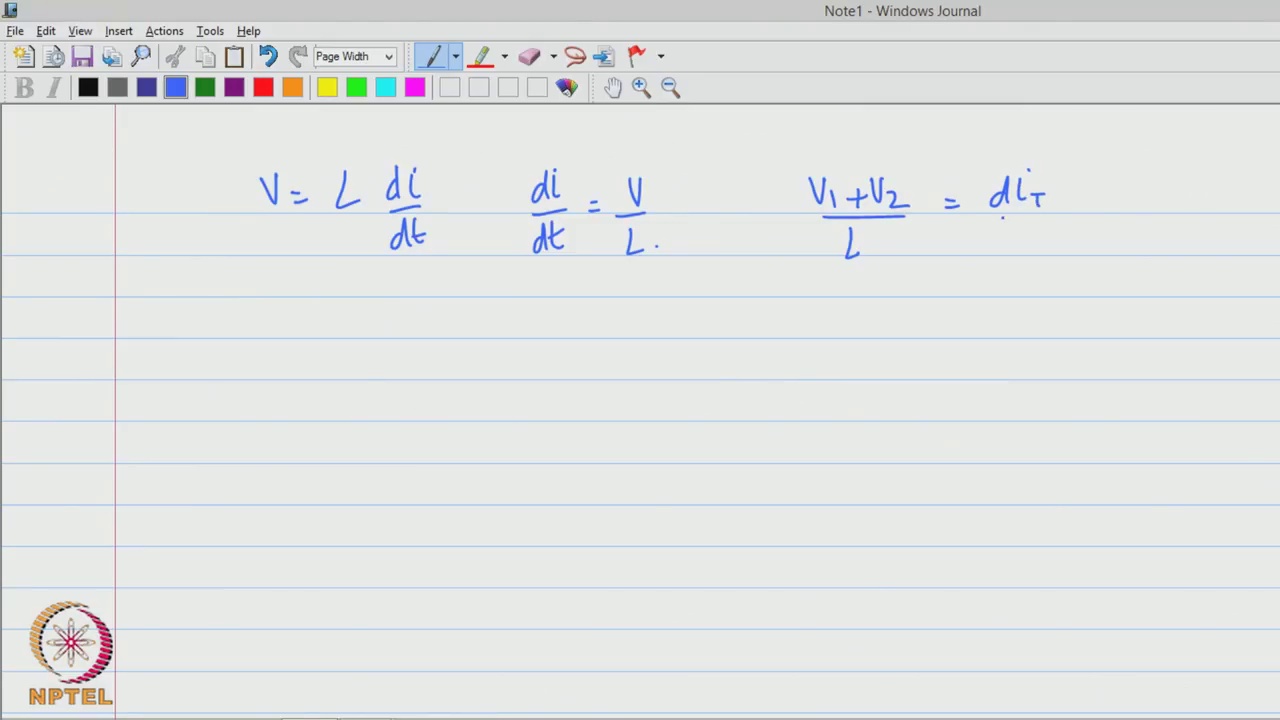 Note1 - Windows Journal
File Edit View Insert Actions Tools Help
Page Width
B I
V = L di/dt di/dt = V/L. V1 + V2/L = diT
NPTEL